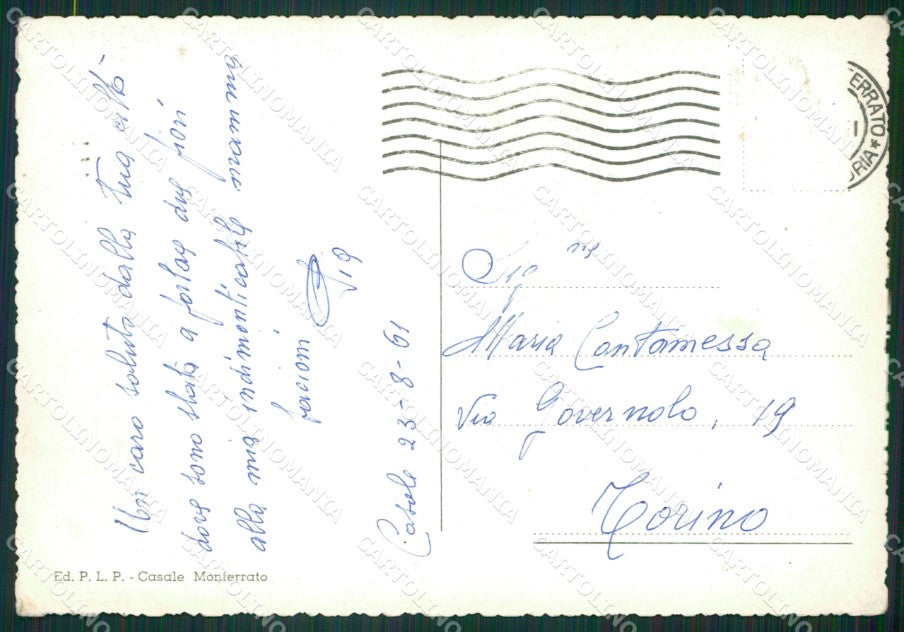 Un caro saluto dalla tua città
dove sono stata a portare dei fiori
alla mia indimenticabile mamma
bacioni
Casale 23-8-61
ERRATO
Sig
Maria Cantamessa
Via Governolo, 19
Torino
Ed. P. L. P. - Casale Monferrato
CARTOLINOMANIA